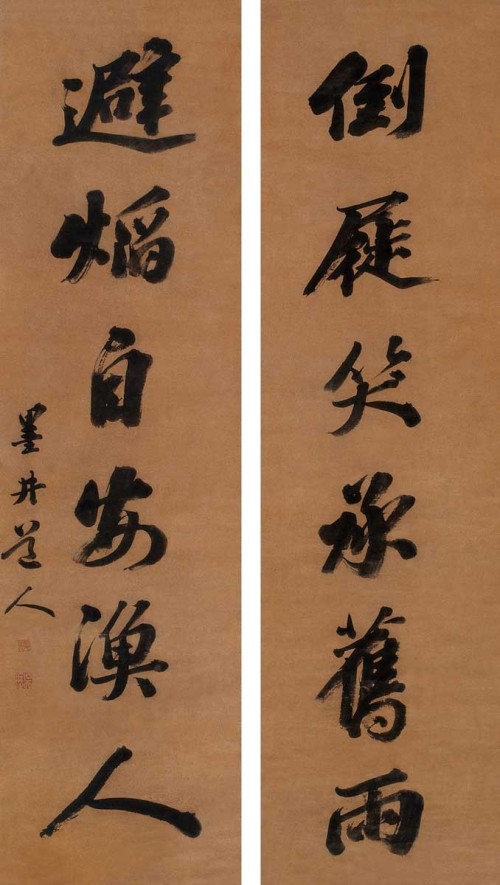 倒屣笑承舊雨
避焰自安漁人
墨井道人